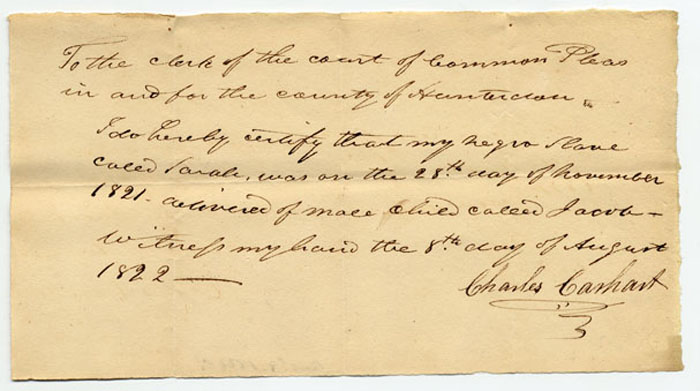 To the clerk of the court of Common Pleas
in and for the county of Hunterdon
I do hereby certify that my negro Slave
caled Sarah, was on the 28th day of november
1821 - delivered of male Child called Jacob -
Witness my hand the 8th day of August
1822 —
Charles Carhart